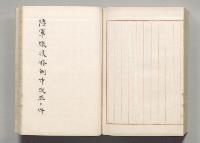 陸軍懲役條例中改正ノ件